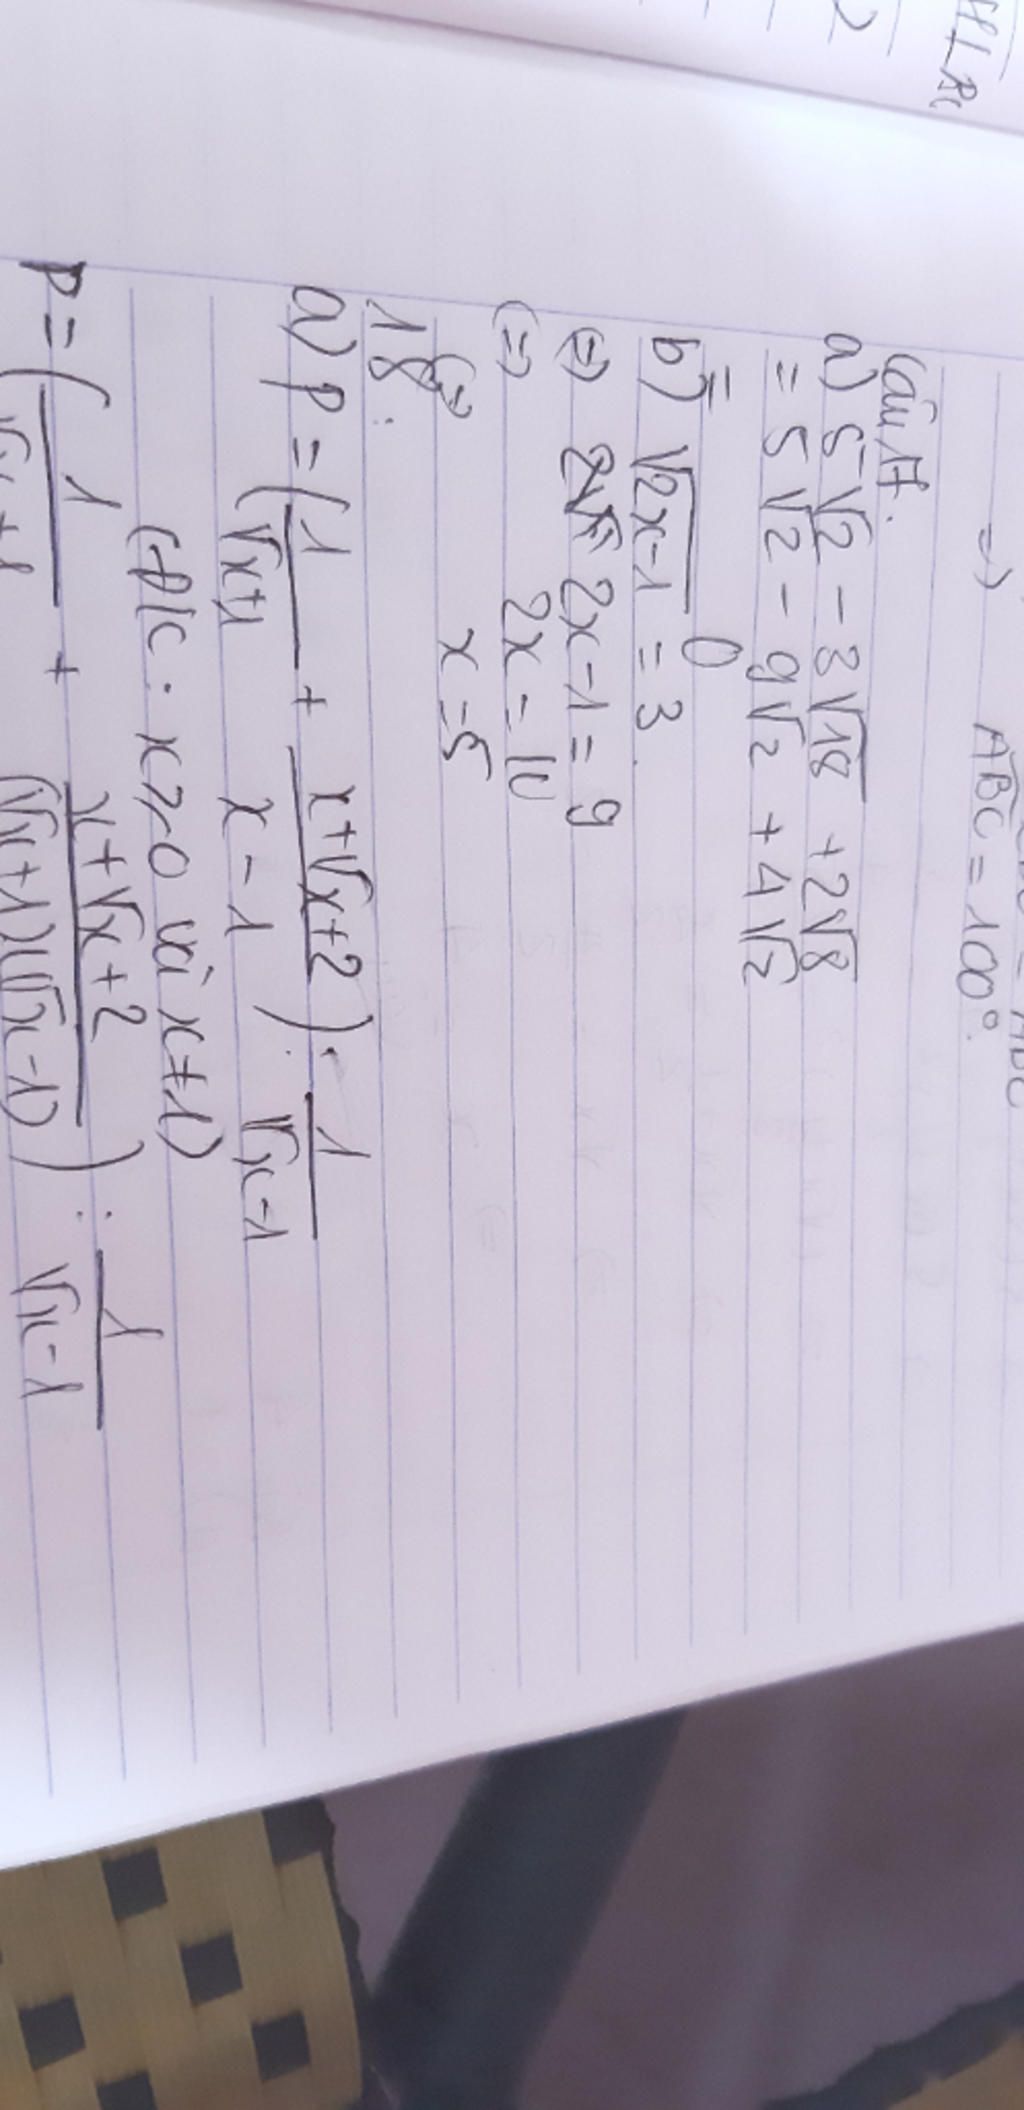 ABC = 100°.
Câu 17.
a) 5√2 - 3√18 + 2√8
= 5√2 - 9√2 + 4√2
= 0
b) √2x-1 = 3
(=) 2x-1 = 9
(=) 2x = 10
(=) x = 5
18:
a) P = (1/√x+1 + x+√x+2/x-1) : 1/√x-1
(Đk: x ≥ 0 và x ≠ 1)
P = (1/√x+1 + x+√x+2/(√x+1)(√x-1)) : 1/√x-1